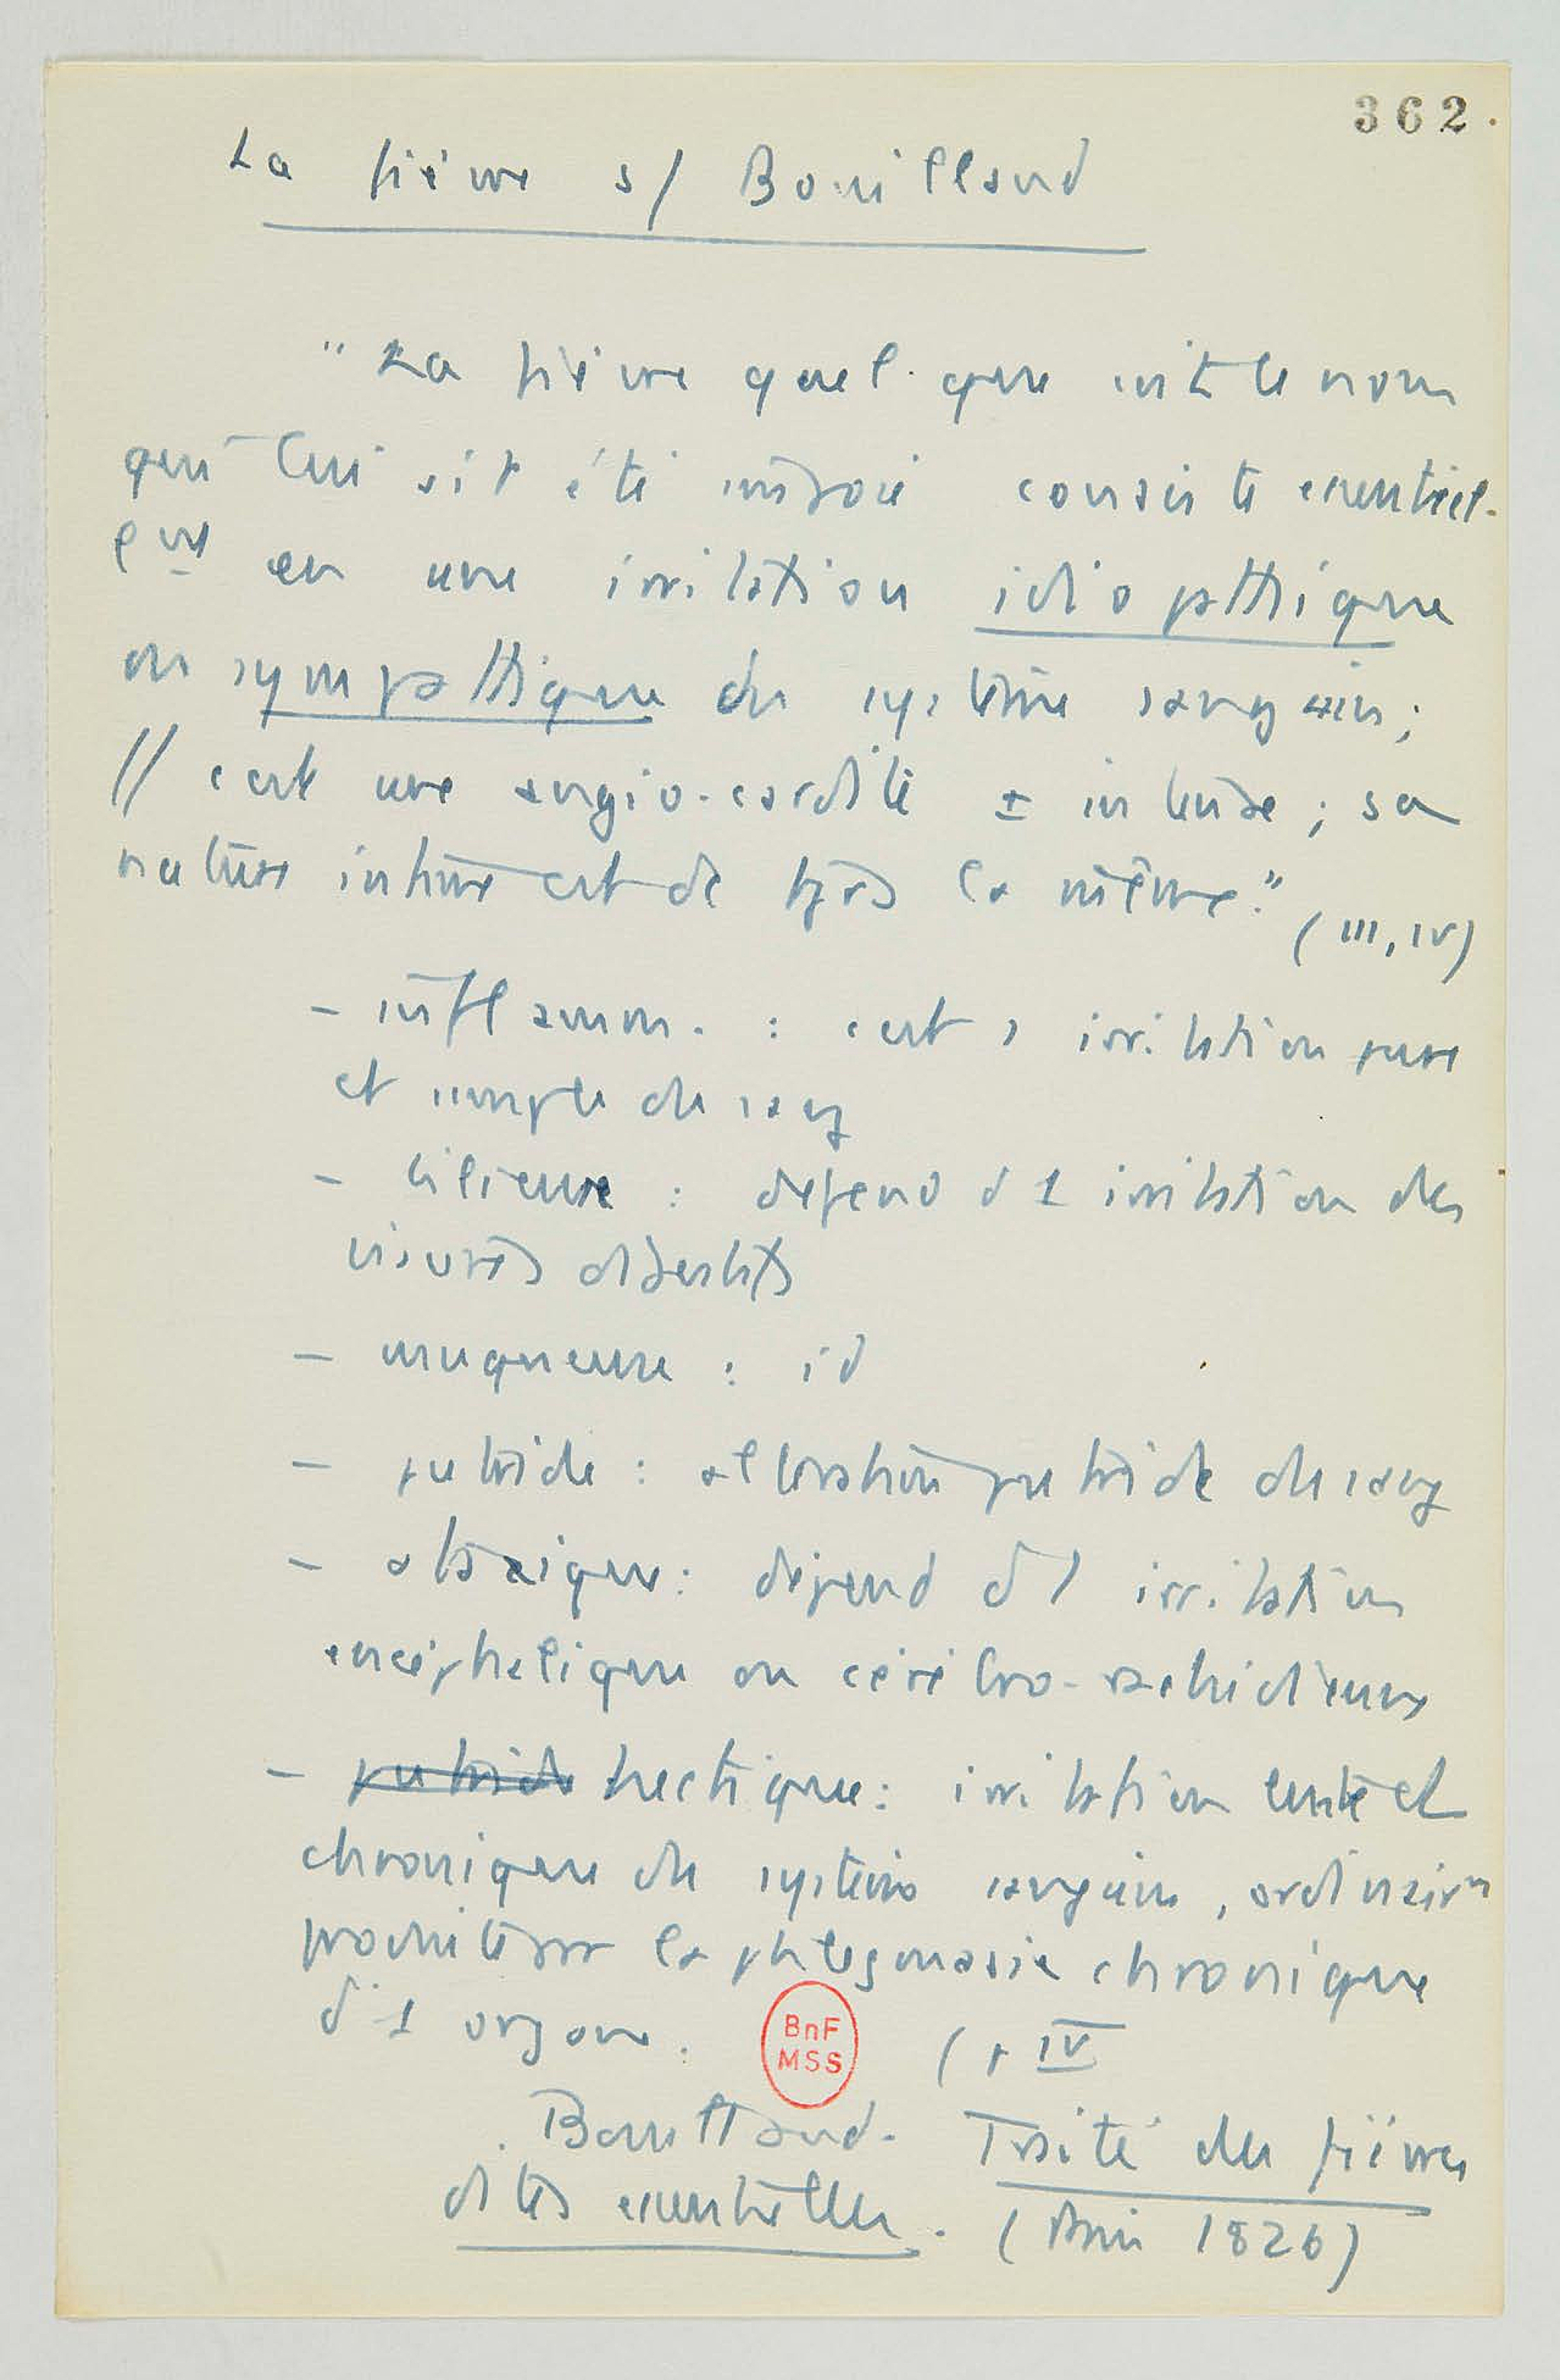 362.
La fièvre s/ Bouillaud
"La fièvre quel que soit le nom
qui lui ait été imposé consiste essentiel-
lmt en une irritation idiopathique
ou sympathique du système sanguin;
// c'est une angio-cardite ± intense ; sa
nature intime est de tjrs la même." (III, IV)
- inflamm. : c'est 1 irritation pure
et simple du sang
- bilieuse : dépend d 1 irritation des
viscères digestifs
- muqueuse : id
- putride : altération putride du sang
- ataxique : dépend d 1 irritation
encéphalique ou cérébro-rachidienne
- putride hectique : irritation lente et
chronique du système sanguin, ordinairmt
produite par la phlegmasie chronique
d'1 organe.
BnF
MSS
(p IV
Bouillaud. Traité des fièvres
dites essentielles. (Paris 1826)